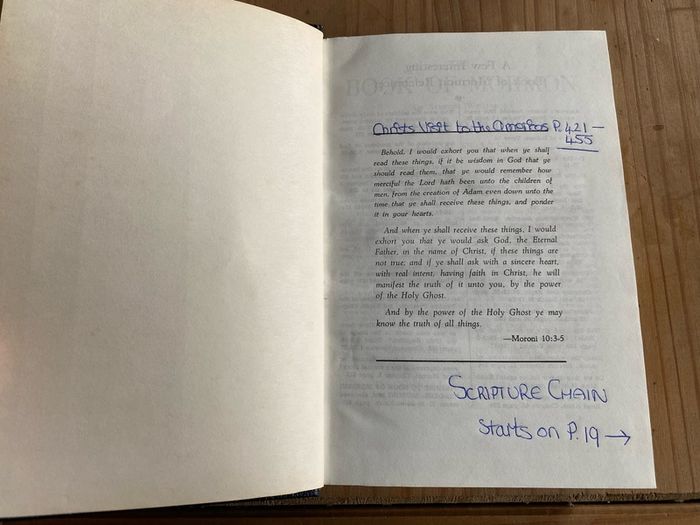 Christs Visit to the Americas P. 421 –
455
Behold, I would exhort you that when ye shall
read these things, if it be wisdom in God that ye
should read them, that ye would remember how
merciful the Lord hath been unto the children of
men, from the creation of Adam even down unto the
time that ye shall receive these things, and ponder
it in your hearts.
And when ye shall receive these things, I would
exhort you that ye would ask God, the Eternal
Father, in the name of Christ, if these things are
not true; and if ye shall ask with a sincere heart,
with real intent, having faith in Christ, he will
manifest the truth of it unto you, by the power
of the Holy Ghost.
And by the power of the Holy Ghost ye may
know the truth of all things.
—Moroni 10:3-5
SCRIPTURE CHAIN
Starts on P. 19 →